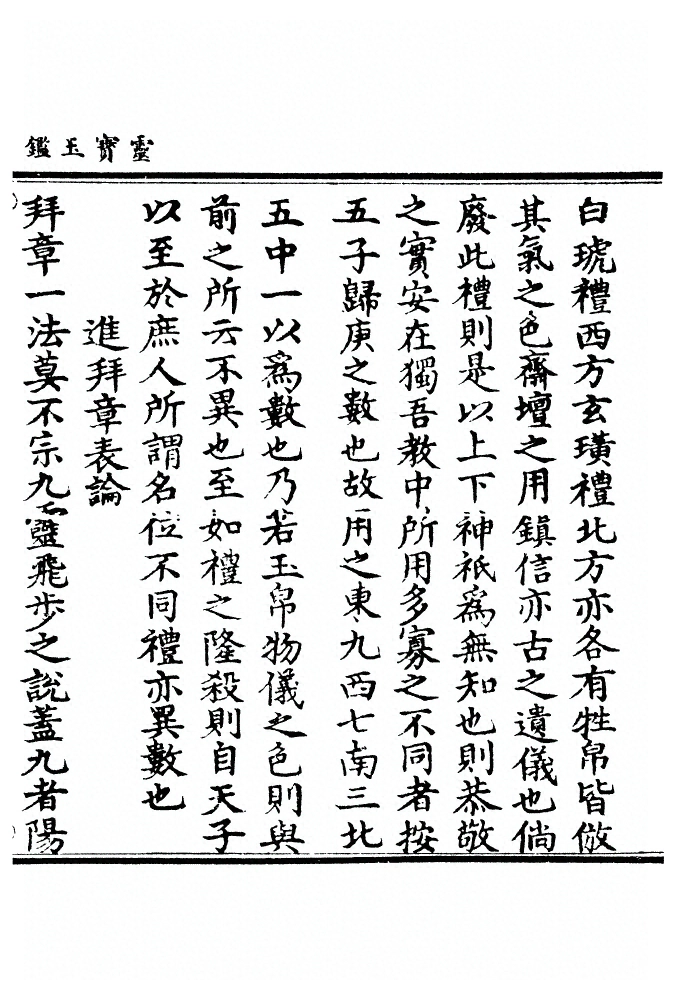 靈寶玉鑑
白琥禮西方玄璜禮北方亦各有牲帛皆倣
其氣之色齋壇之用鎮信亦古之遺儀也倘
廢此禮則是以上下神祇爲無知也則恭敬
之實安在獨吾教中所用多寡之不同者按
五子歸庚之數也故用之東九西七南三北
五中一以爲數也乃若玉帛物儀之色則與
前之所云不異也至如禮之隆殺則自天子
以至於庶人所謂名位不同禮亦異數也
進拜章表論
拜章一法莫不宗九靈飛步之說蓋九者陽